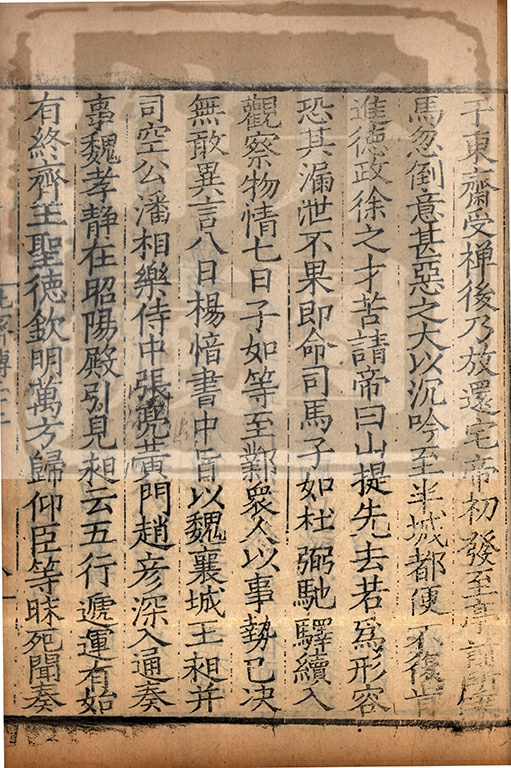 于東齋受禅後乃放還宅帝初發至亭前所乗
馬忽倒意甚惡之大以沉吟至半城都便不復肯
進德政徐之才苦請帝曰山提先去若為形容
恐其漏泄不果即命司馬子如杜弼馳驛續入
觀察物情七日子如等至鄴衆人以事勢已决
無敢異言八日楊愔書中旨以魏襄城王昶并
司空公潘相樂侍中張亮黄門趙彦深入通奏
事魏孝静在昭陽殿引見昶云五行遞運有始
有終齊王聖德欽明萬方歸仰臣等昧死聞奏